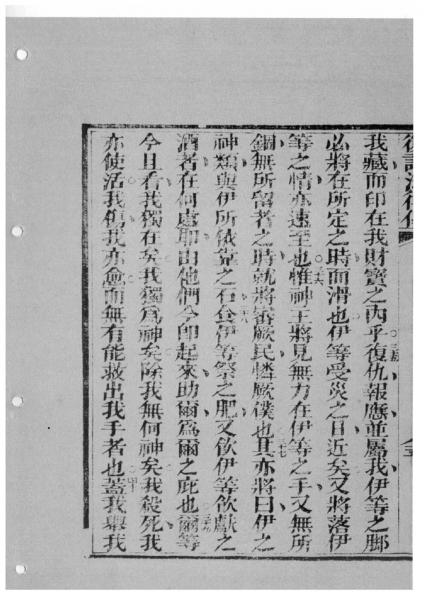 我藏而印在我財寶之內乎復仇報應並屬我伊等之腳
必將在所定之時而滑也伊等受災之日近矣又將落伊
等之情亦速至也惟神王將見無力在伊等之手又無所
錮無所留者之時就將審厥民憐厥僕也其亦將曰伊之
神類與伊所倚靠之石食伊等祭之肥又飲伊等飲獻之
酒者在何處耶由他們今即起來助爾為爾之庇也爾等
今且看我獨在矣我獨為神矣除我無何神矣我殺死我
亦使活我傷我亦愈而無有能救出我手者也蓋我舉我